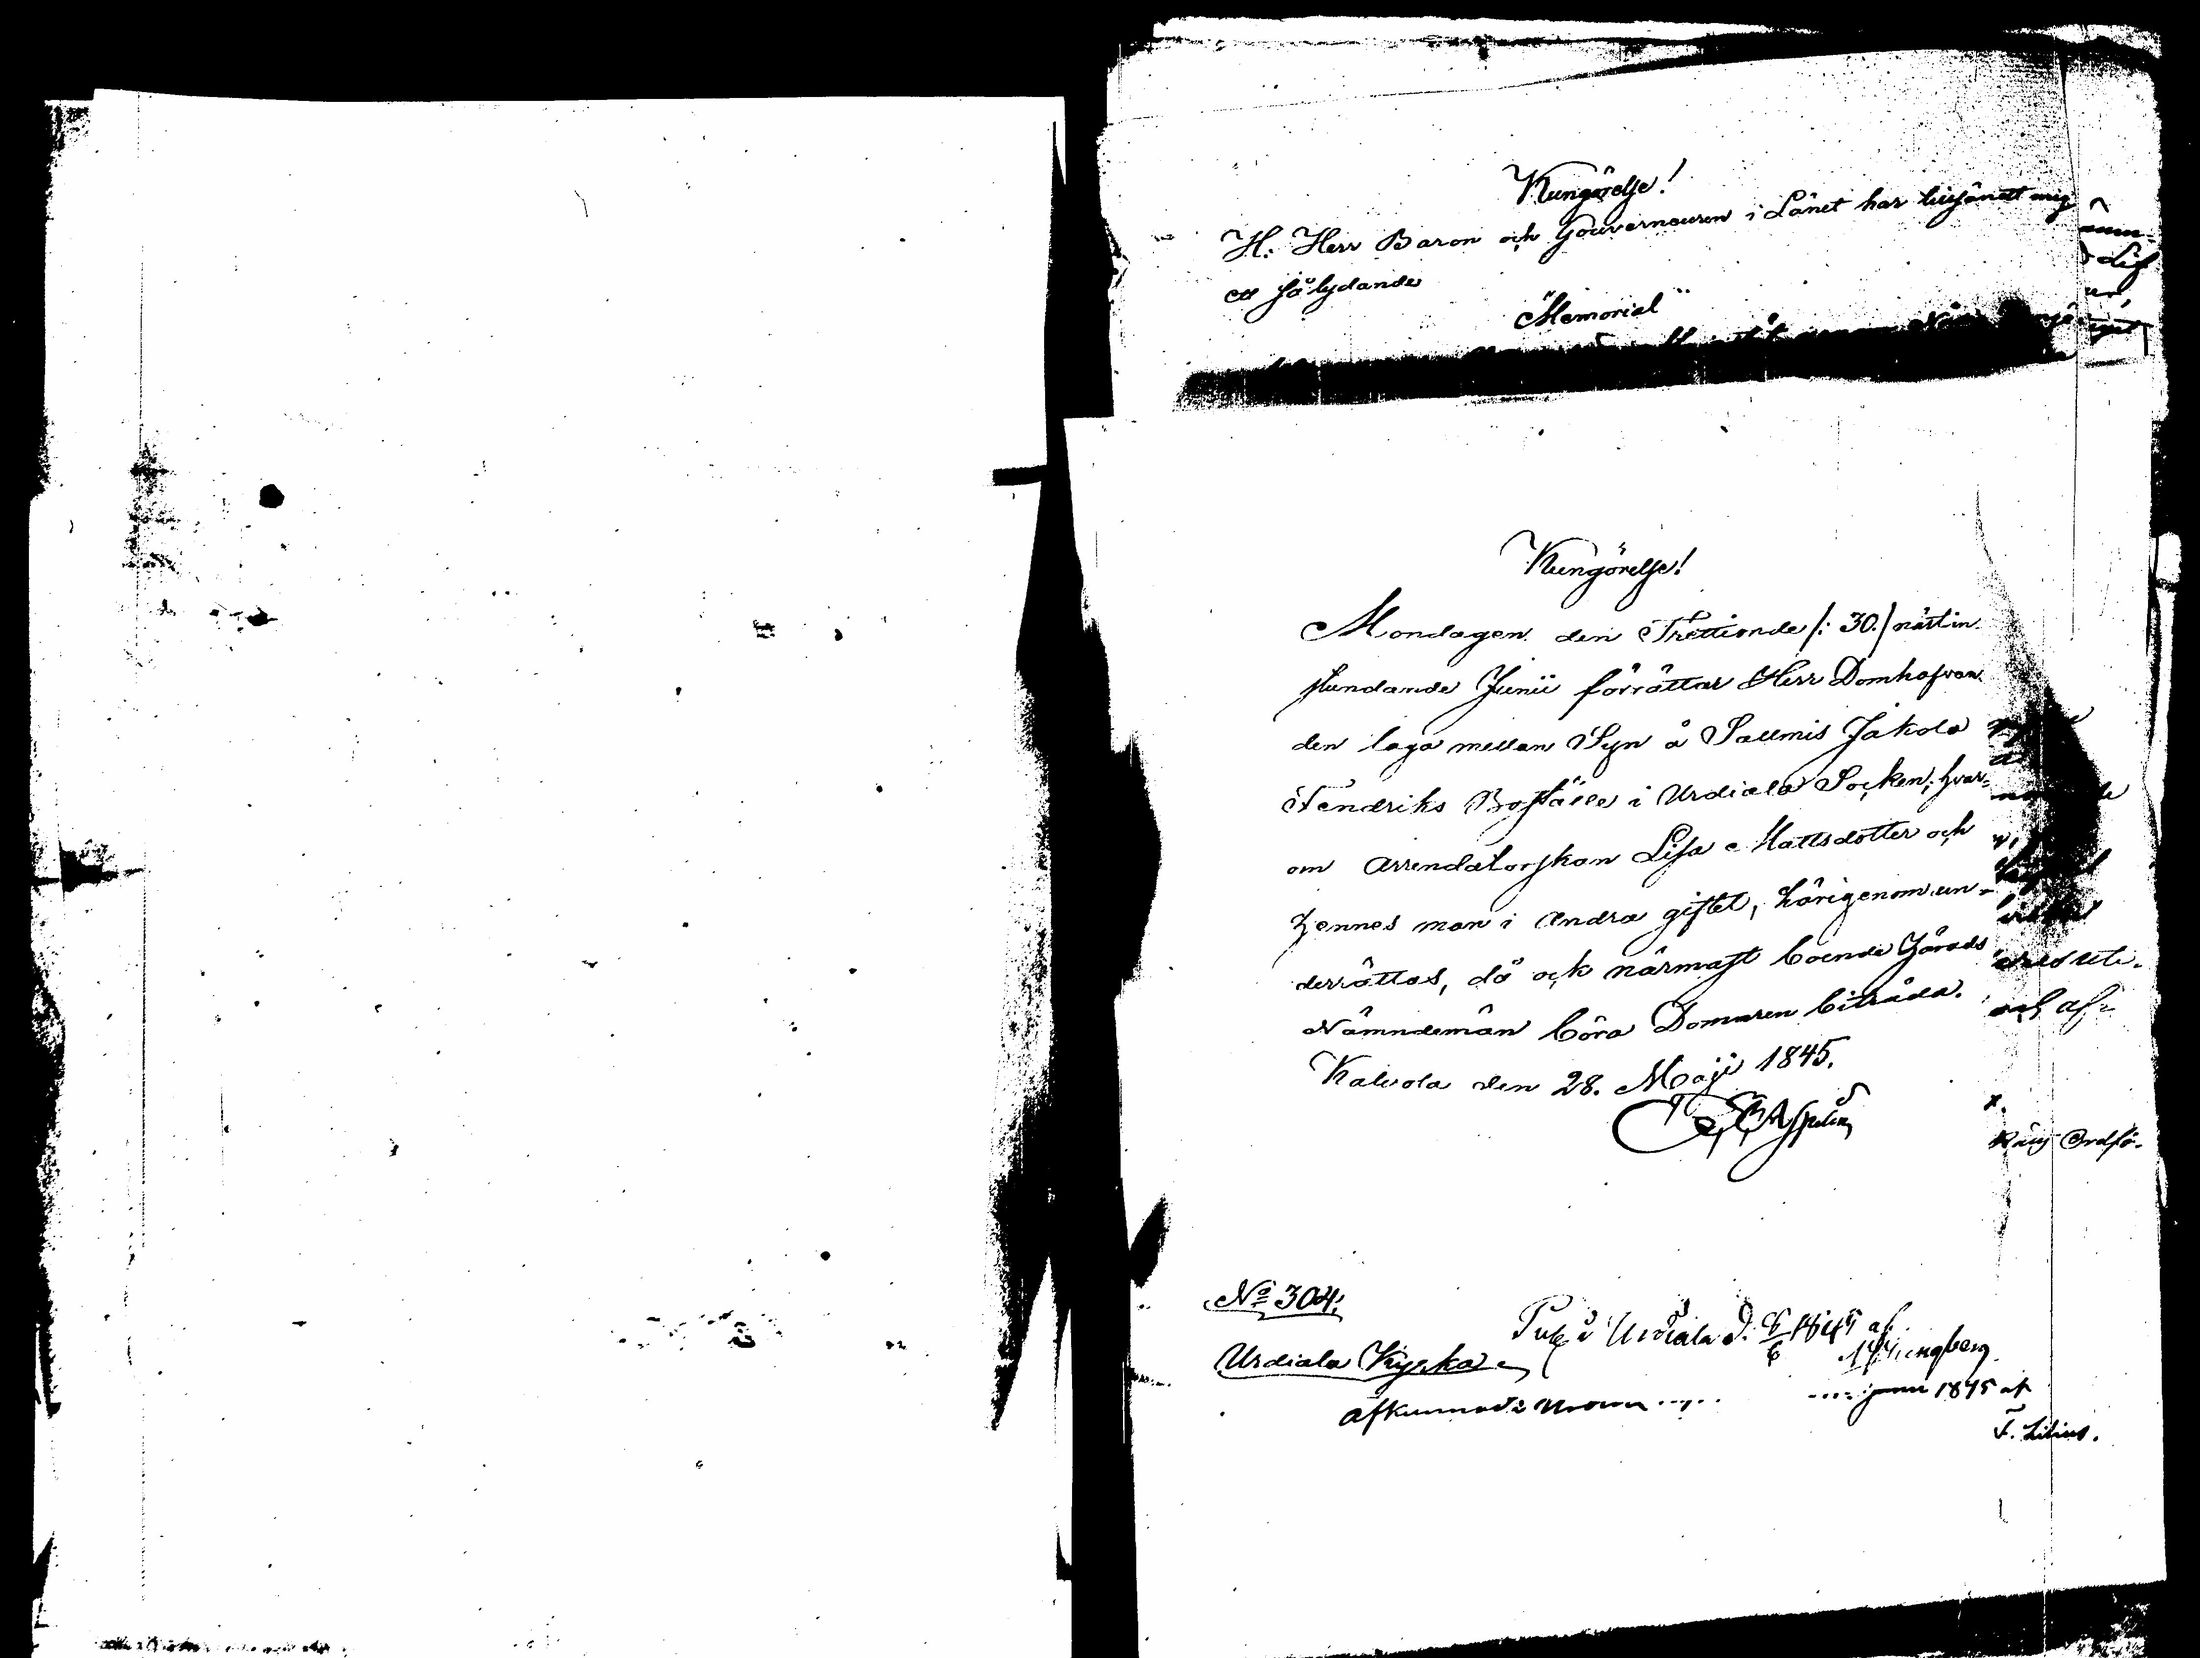 Kungörelse!
H. Herr Baron och Gouverneuren i Länet har tillsändt mig
ett så lydande
"Memorial"
Kungörelse!
Mondagen den Trettionde /: 30./ nästin
stundande Junii förrättar Herr Domhafvan
den laga mellan Syn å Sallmis Jakola
Fendriks Boställe i Urdiala Socken; hvar-
om Arrendatorskan Lisa Mattsdotter och
hennes man i andra giftet, härigenom un-
derrättas, då ock närmast boende Härads
Nämndemän böra Domaren biträda.
Kalvola den 28. Maji 1845.
No 304.
Publ i Urdiala d. 8/6 1845 af
Ljungberg
Urdiala Kyrka
Afkunnad i
1845 af
F. Lilius.
och af-
Ordfö-